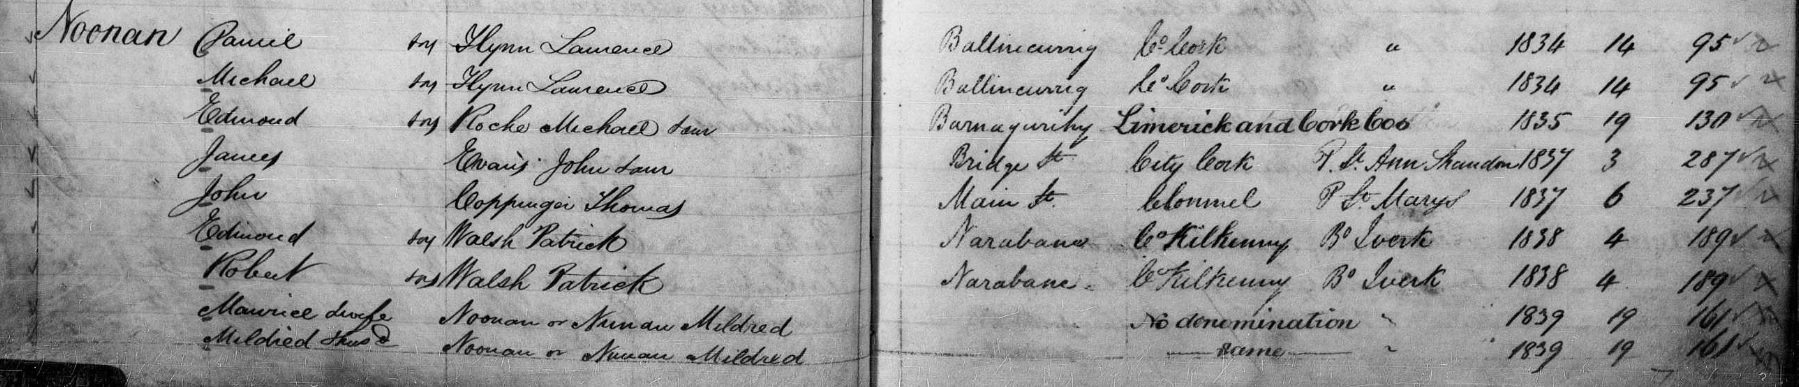 Noonan Daniel to Flynn Laurence Ballincurrig Co. Cork " 1834 14 95
Michael to Flynn Laurence Ballincurrig Co. Cork " 1834 14 95
Edmond to Roche Michael & anr Barnagurrihy Limerick and Cork Cos 1835 19 130
James Evans John & anr Bridge St City Cork P. St. Ann Shandon 1837 3 287
John Coppinger Thomas Main St. Clonmel P St. Marys 1837 6 237
Edmond to Walsh Patrick Narabane Co. Kilkenny Bo Iverk 1838 4 189
Robert to Walsh Patrick Narabane Co Kilkenny Bo Iverk 1838 4 189
Maurice & wife Noonan or Nunan Mildred No denomination " 1839 19 161
Mildred & husbd Noonan or Nunan Mildred same " 1839 19 161